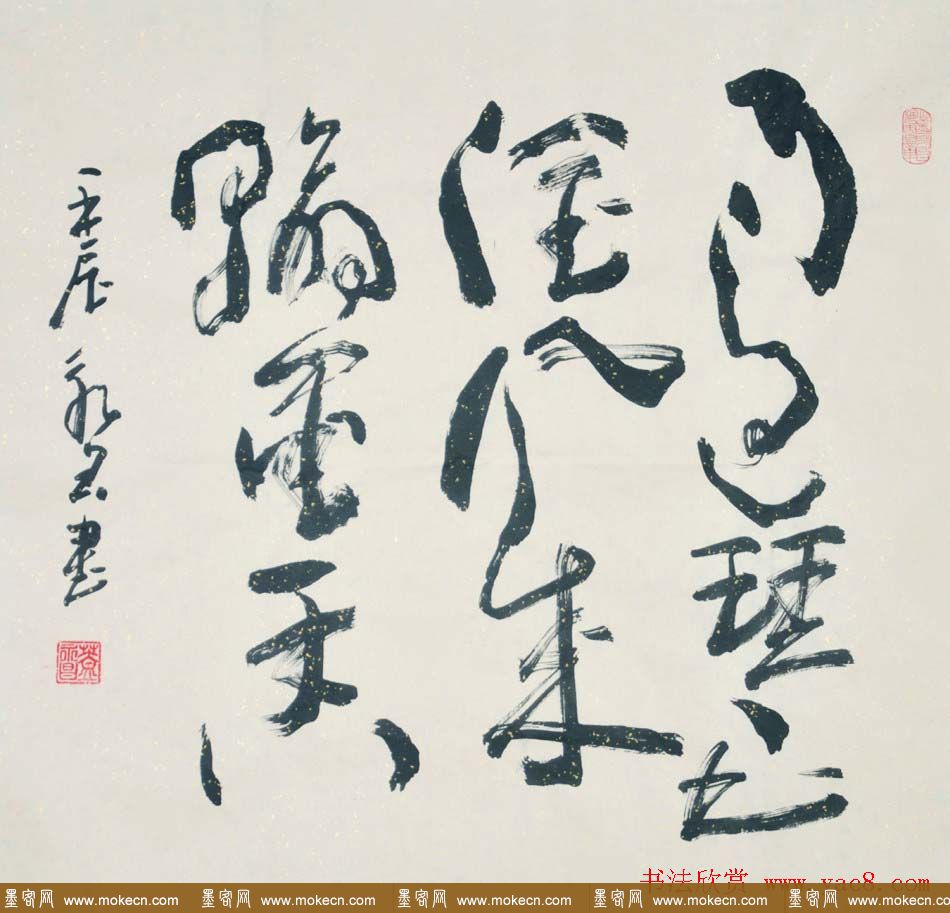 雨過琴书
润風来
翰墨香
壬辰 永 書
书法欣赏 www.yac8.com
墨客网 www.mokecn.com 墨客网 www.mokecn.com 墨客网 www.mokecn.com 墨客网 www.mokecn.com 墨客网 www.mokecn.com